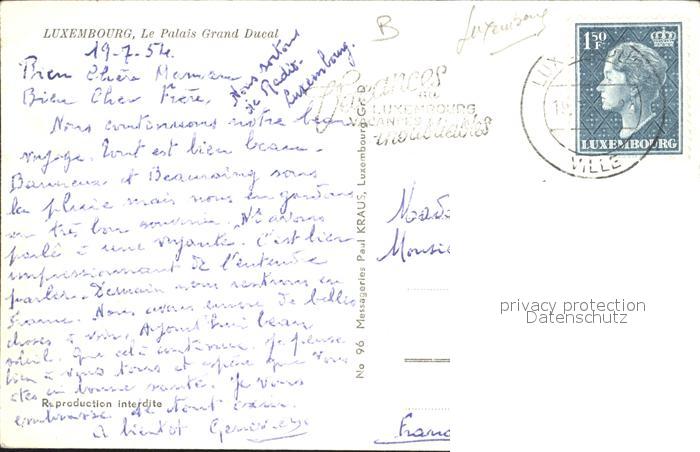 LUXEMBOURG, Le Palais Grand Ducal
19-7-54.
Bien Chère Maman
Bien Cher Frère,
Nous sortons
de Radio-
Luxembourg.
Nous continuons notre beau
voyage. Tout est bien beau.
et Beauraing sous
la pluie mais nous en gardons
un très bon souvenir.
parlé à une voyante. C'est bien
impressionnant de l'entendre
parler. Demain nous rentrons en
France. Nous avons encore de belles
choses à voir. Aujourd'hui beau
soleil. Que cela continue. Je pense
bien à vous tous et espère que vous
êtes en bonne santé. Je vous
embrasse de tout cœur.
à bientôt Geneviève
Reproduction interdite
No 96 Messageries Paul KRAUS, Luxembourg G.-D.
B
Luxembourg
Vacances
AU
LUXEMBOURG
VACANCES
inoubliables
1.50 F.
LUXEMBOURG
LUX
VILLE
Mada
Monsie
Franc
privacy protection
Datenschutz